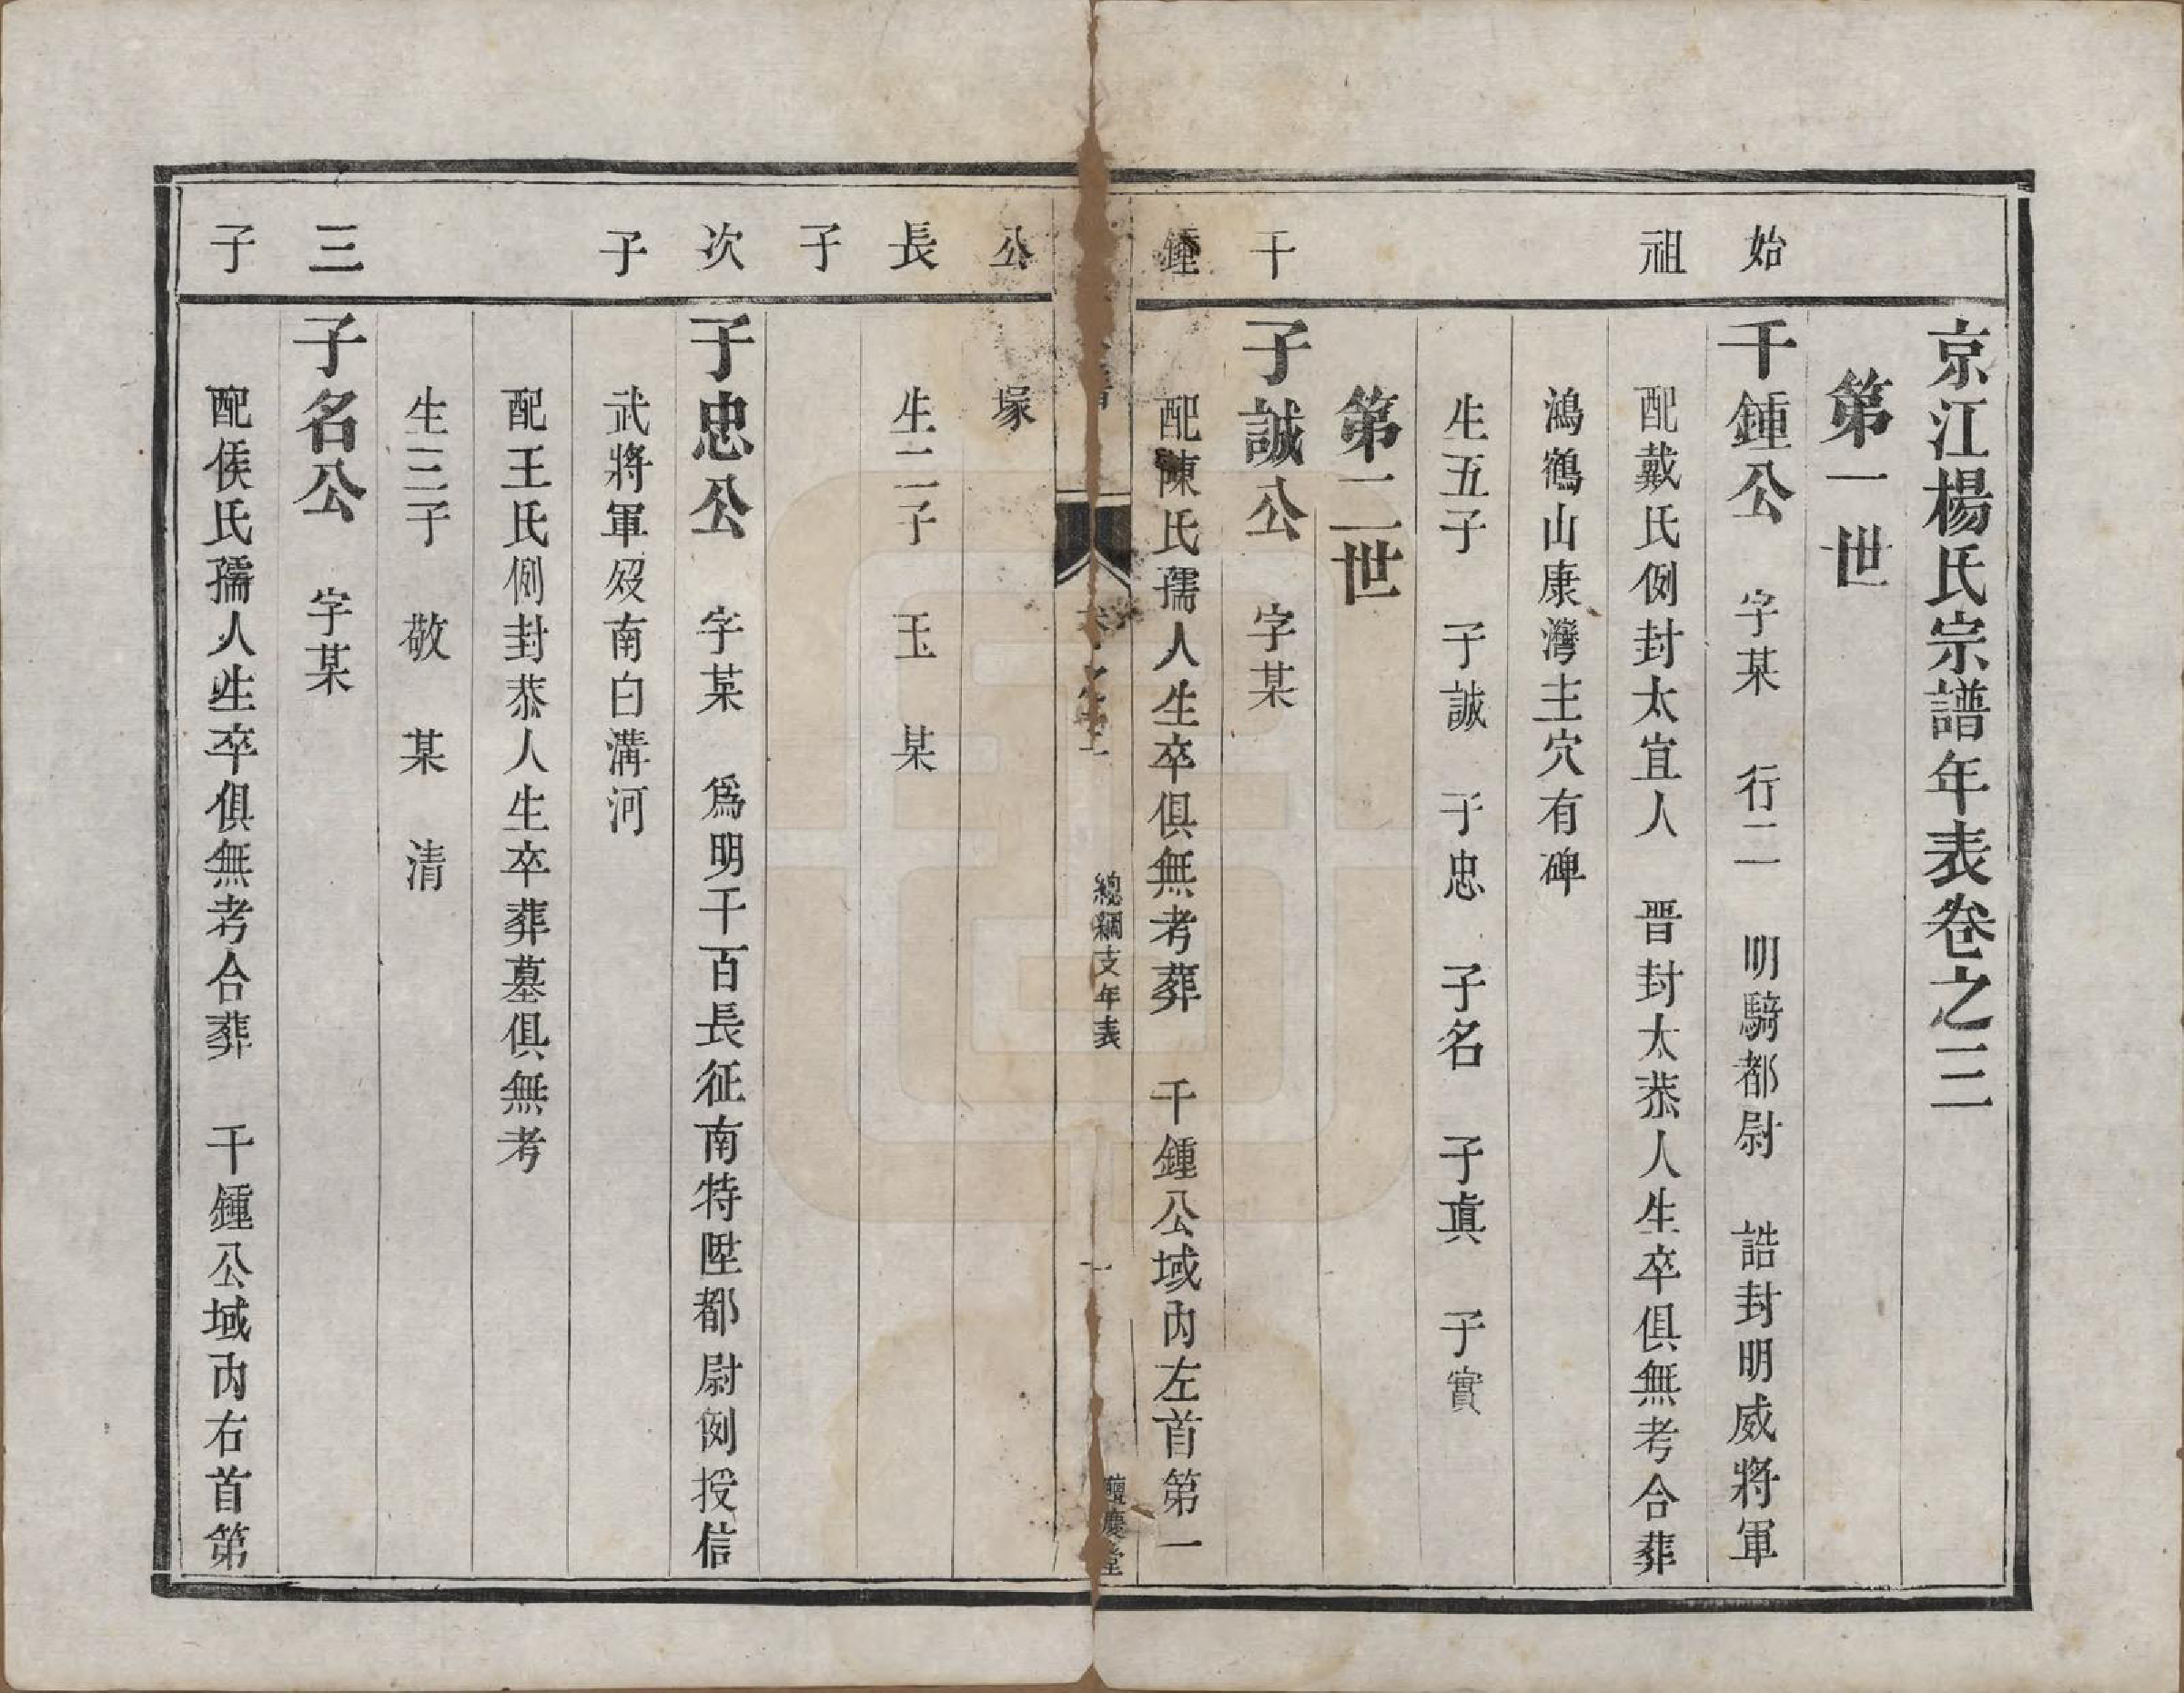 京江楊氏宗譜年表卷之三
第一世
始祖
千鍾公　字某　行二　明騎都尉　誥封明威將軍
配戴氏例封太宜人　晋封太恭人生卒俱無考合葬
鴻鶴山康灣主穴有碑
生五子　子誠　子忠　子名　子眞　子實
第二世
千鍾公長子
子誠公　字某
配陳氏孺人生卒俱無考葬　千鍾公域內左首第一
總綱支年表
一
慶堂
塚
生二子　玉　某
次子
子忠公　字某　爲明千百長征南特陞都尉例授信
武將軍歿南白溝河
配王氏例封恭人生卒葬墓俱無考
生三子　敬　某　清
三子
子名公　字某
配侯氏孺人生卒俱無考合葬　千鍾公域內右首第